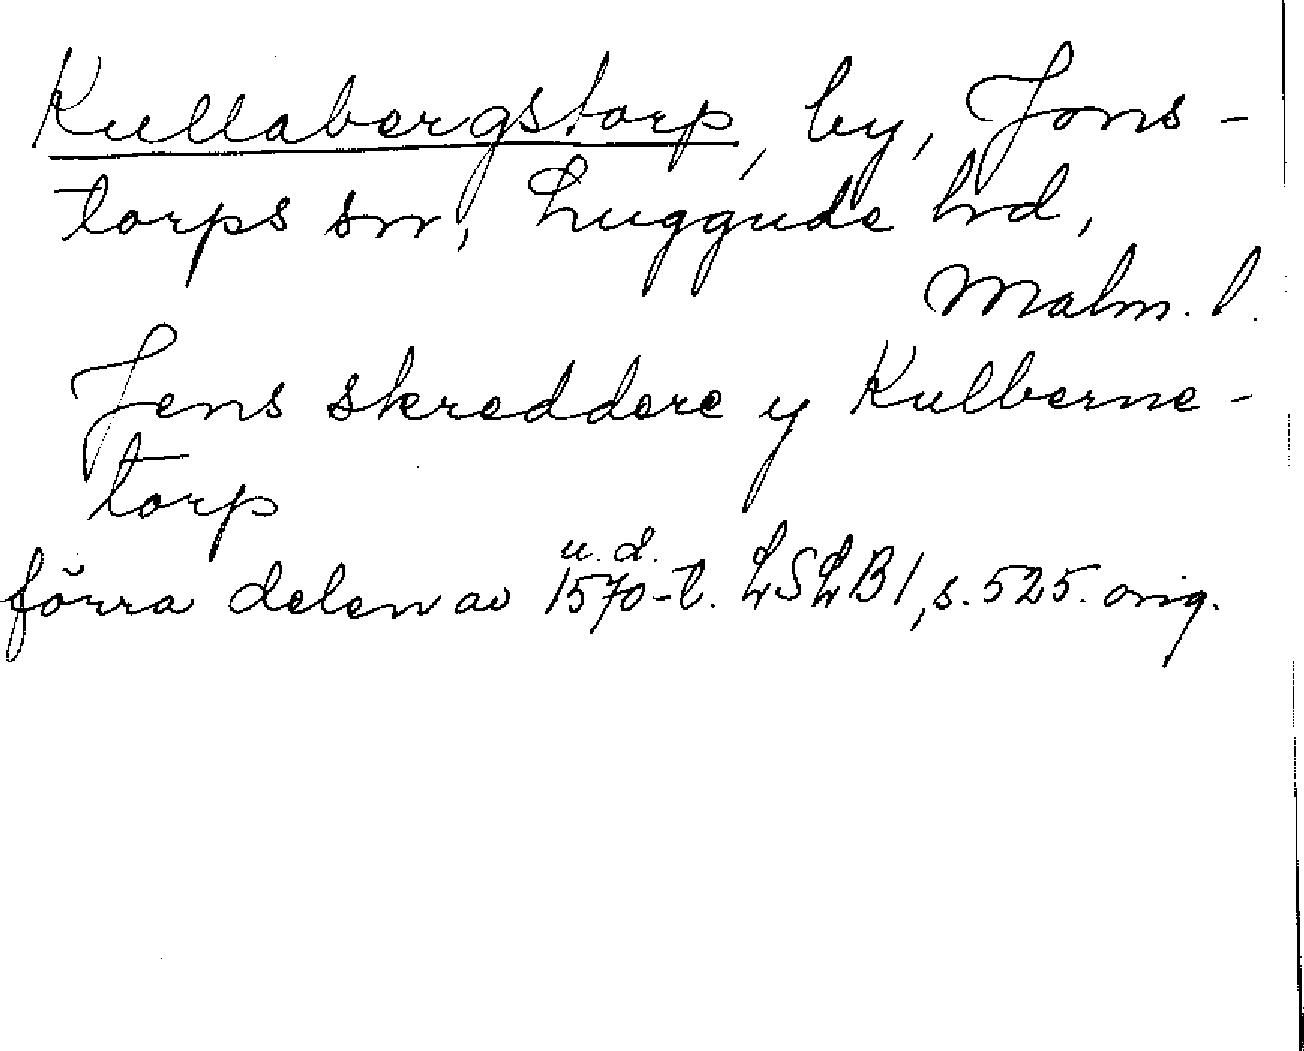 Kullabergstorp, by, Jons-
torps sn, Luggude hd,
Malm. l.
Jens skreddere y Kulberne-
torp
u. d.
förra delen av 1570-t. LSLB1, s. 525. orig.